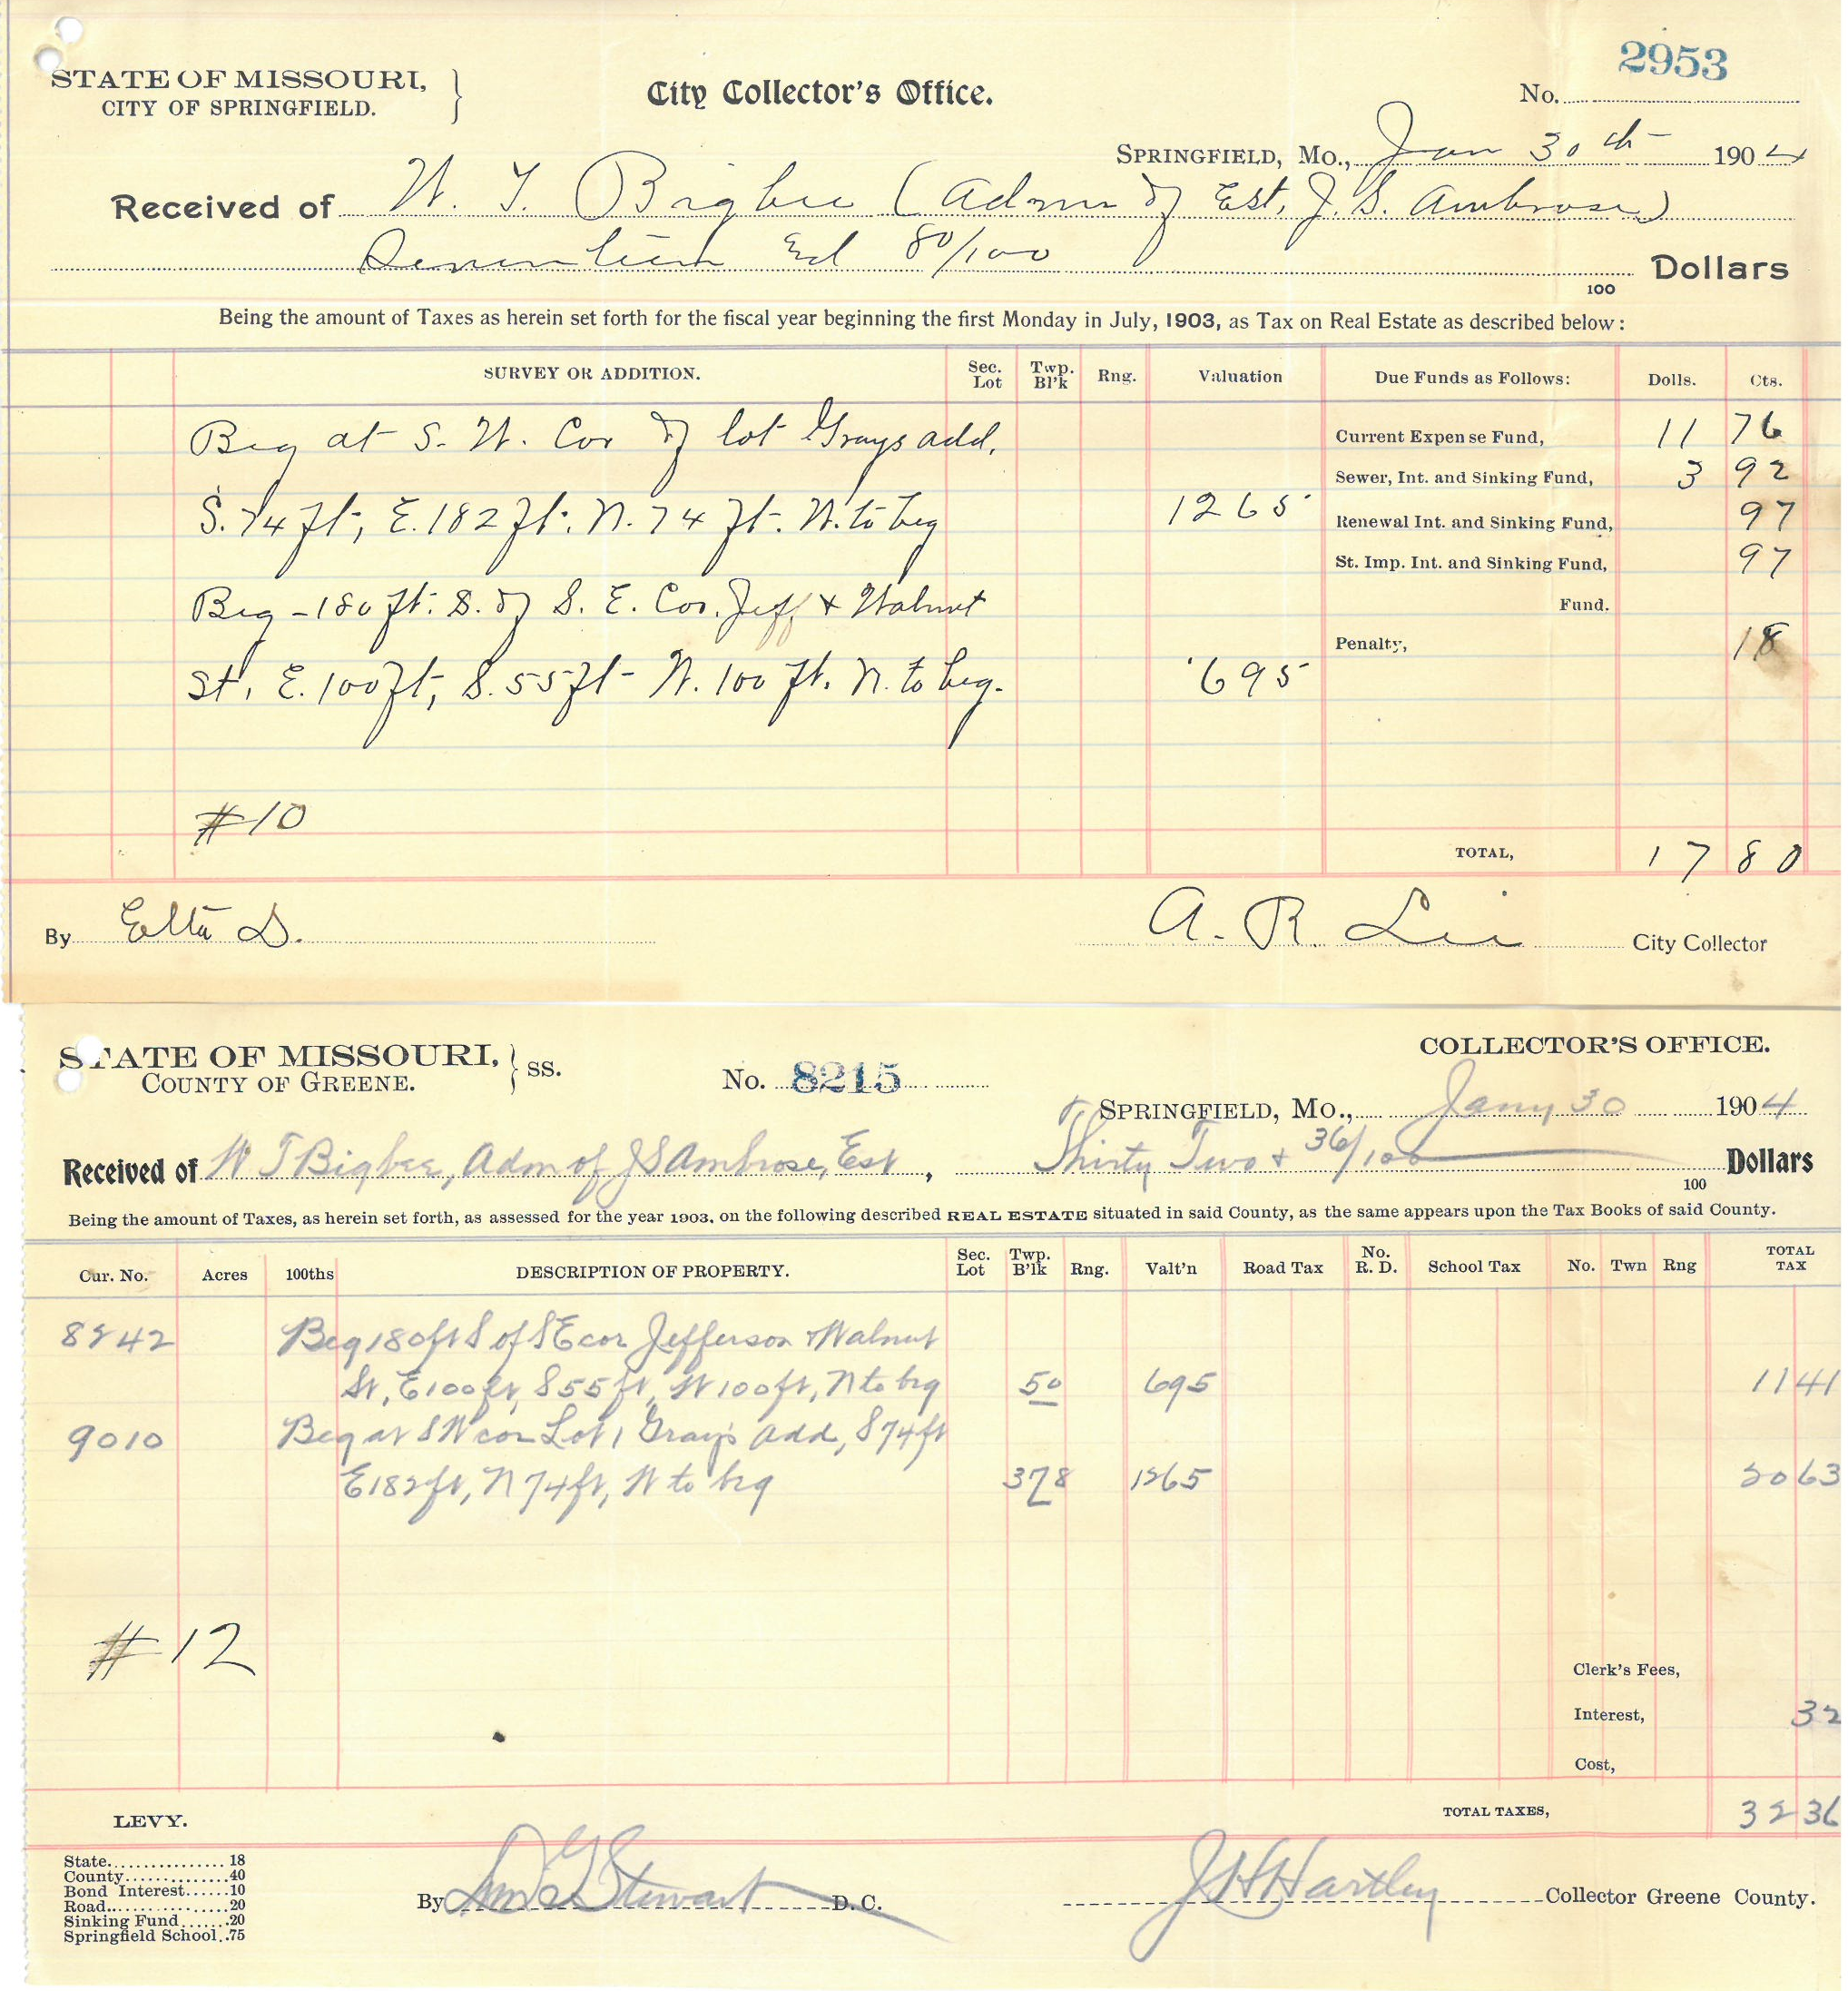 2953
STATE OF MISSOURI,
CITY OF SPRINGFIELD.
City Collector's Office.
No.
SPRINGFIELD, Mo., Jan 30th 1904
Received of W. T. Bigbee (Admr of Est, J. S. Ambrose)
Seventeen & 80/100 Dollars
100
Being the amount of Taxes as herein set forth for the fiscal year beginning the first Monday in July, 1903, as Tax on Real Estate as described below:
SURVEY OR ADDITION. Sec. Lot Twp. Bl'k Rng. Valuation Due Funds as Follows: Dolls. Cts.
Beg at S. W. Cor of lot Grays add. Current Expense Fund, 11 76
Sewer, Int. and Sinking Fund, 3 92
S. 74 ft, E. 182 ft. N. 74 ft. W. to beg 1265 Renewal Int. and Sinking Fund, 97
St. Imp. Int. and Sinking Fund, 97
Beg - 180 ft. S. of S. E. Cor. Jeff & Walnut Fund.
Penalty, 18
St, E. 100 ft, S. 55 ft - W. 100 ft. N. to beg. 695
#10
TOTAL, 17 80
By Etta D. A. R. City Collector
STATE OF MISSOURI,
COUNTY OF GREENE. } SS.
No. 8215
COLLECTOR'S OFFICE.
SPRINGFIELD, Mo., Jany 30 1904
Received of W T Bigbee, Adm of J S Ambrose, Est, Thirty Two & 36/100 Dollars
100
Being the amount of Taxes, as herein set forth, as assessed for the year 1903, on the following described REAL ESTATE situated in said County, as the same appears upon the Tax Books of said County.
Cur. No. Acres 100ths DESCRIPTION OF PROPERTY. Sec. Lot Twp. B'lk Rng. Valt'n Road Tax No. R. D. School Tax No. Twn Rng TOTAL TAX
8242 Beg 180 ft S of S E cor Jefferson & Walnut
St, E 100 ft, S 55 ft, W 100 ft, N to beg 50 695 11 41
9010 Beg at S W cor Lot 1 Gray's Add, S 74 ft
E 182 ft, N 74 ft, W to beg 378 1265 20 63
#12
Clerk's Fees,
Interest, 32
Cost,
LEVY. TOTAL TAXES, 32 36
State................ 18
County.............. 40
Bond Interest...... 10
Road................. 20
Sinking Fund....... 20
Springfield School.. 75
By Stewart D. C. J H Hartley Collector Greene County.